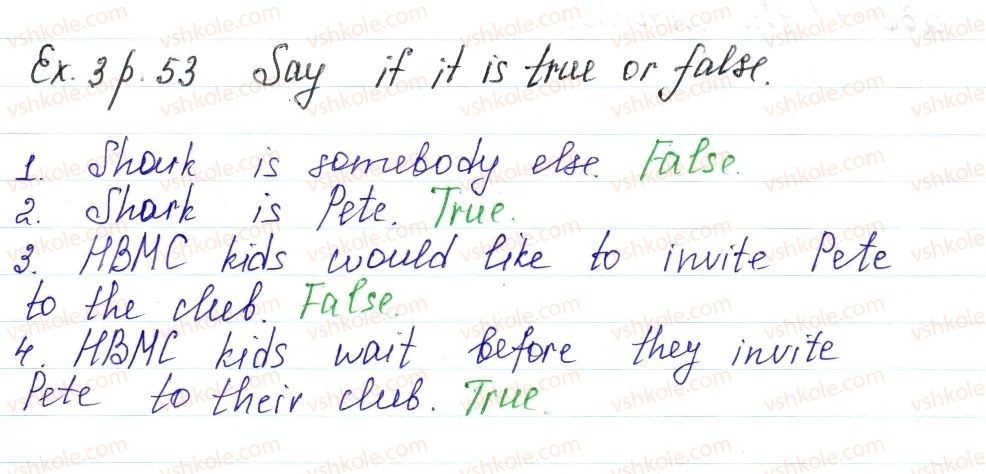 Ex. 3 p. 53 Say if it is true or false.
1. Shark is somebody else. False.
2. Shark is Pete. True.
3. HBMC kids would like to invite Pete
to the club. False.
4. HBMC kids wait before they invite
Pete to their club. True.